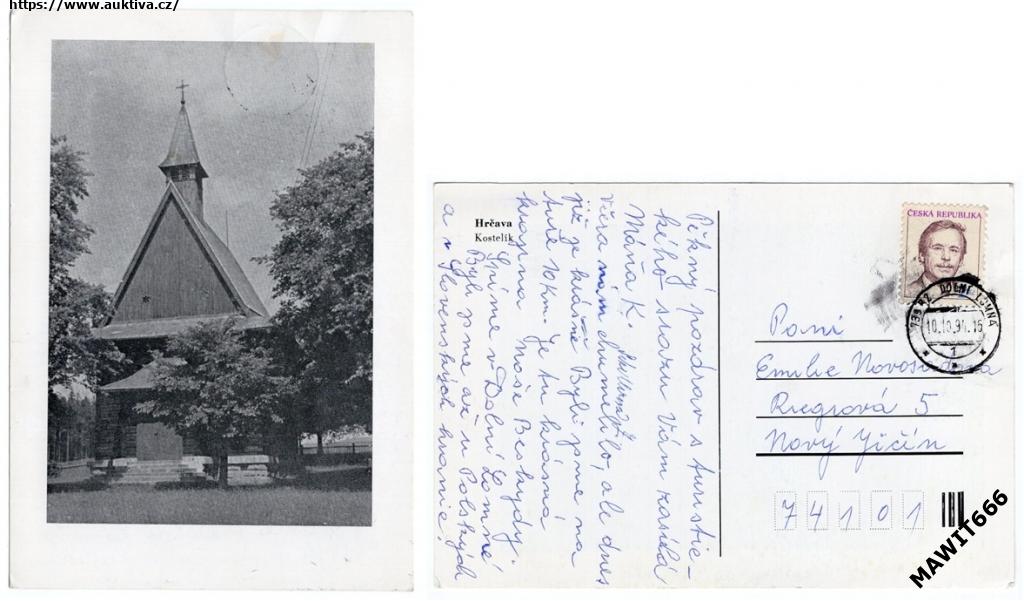 https://www.auktiva.cz/
Hrčava
Kostelík
Pěkný pozdrav s turistic-
kého srazu Vám zasílá
Máňa K.
Včera nám chumelilo, ale dnes
již je krásně. Byli jsme na
túře 10km. Je tu krásná
krajina. Naše Beskydy.
Spíme v Dolní Lomné
Byli jsme až u Polských
a v Slovenských hranic.
ČESKÁ REPUBLIKA
739 92 DOLNÍ LOMNÁ
10.10.94.16
1
Paní
Emilie Novosadová
Riegrová 5
Nový Jičín
74101
MAWIT666